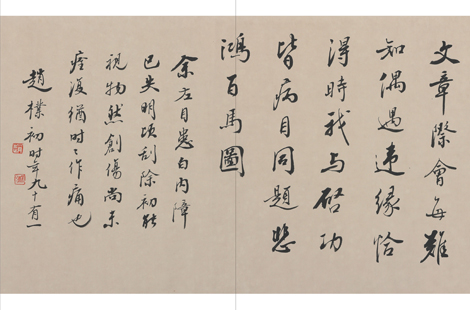 文章際會每難
知偶遇違緣恰
得時我与啓功
皆病目同題悲
鴻百馬圖
余左目患白内障
已失明頃刮除初能
視物然創傷尚未
痊復猶時〻作痛也
趙樸初時年九十有一